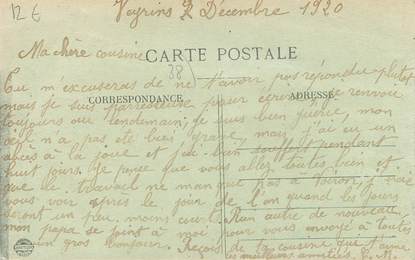 12 €
Veyrins 2 Décembre 1920
Ma chère cousine
CARTE POSTALE
(38)
Tu m'excuseras de ne t'avoir pas répondu plutôt
mais je suis paresseuse pour écrire je renvoie
CORRESPONDANCE
ADRESSE
toujours au lendemain, je suis bien guérie, mon
n'a pas été bien grave, mais j'ai eu un
abcès à la joue et j'ai bien souffert pendant
huit jours. Je pense que vous allez toutes bien et
que le travail ne manque pas à Voiron, j'irai
vous voir après le jour de l'an quand les jours
seront un peu moins court. Rien autre de nouveau
mon papa se joint à moi pour vous envoyer à toutes
un gros bonjour. Reçois de ta cousine qui t'aime
les meilleures amitiés.